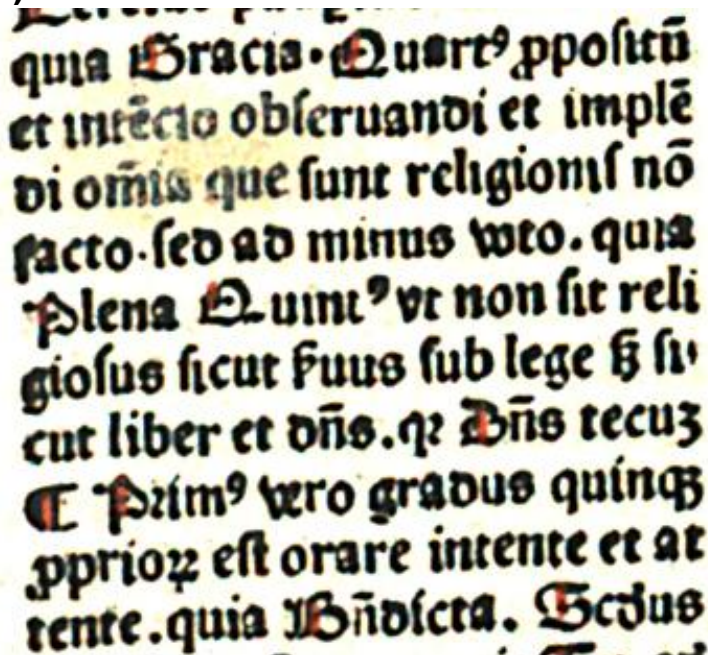 quia Gracia. Quartꝰ ꝓpoſitū
et intēcio obſeruandi et implē
di om̄ia que ſunt religioniſ nō
facto. ſed ad minus voto. quia
Plena Quintꝰ vt non ſit reli
gioſus ſicut ẜuus ſub lege ſꝫ ſi
cut liber et dn̄s. qꝛ Dn̄s tecuꝫ
¶ Primꝰ vero gradus quinqꝫ
ꝓprioꝝ eſt orare intente et at
tente. quia Bn̄dicta. Scd̓us